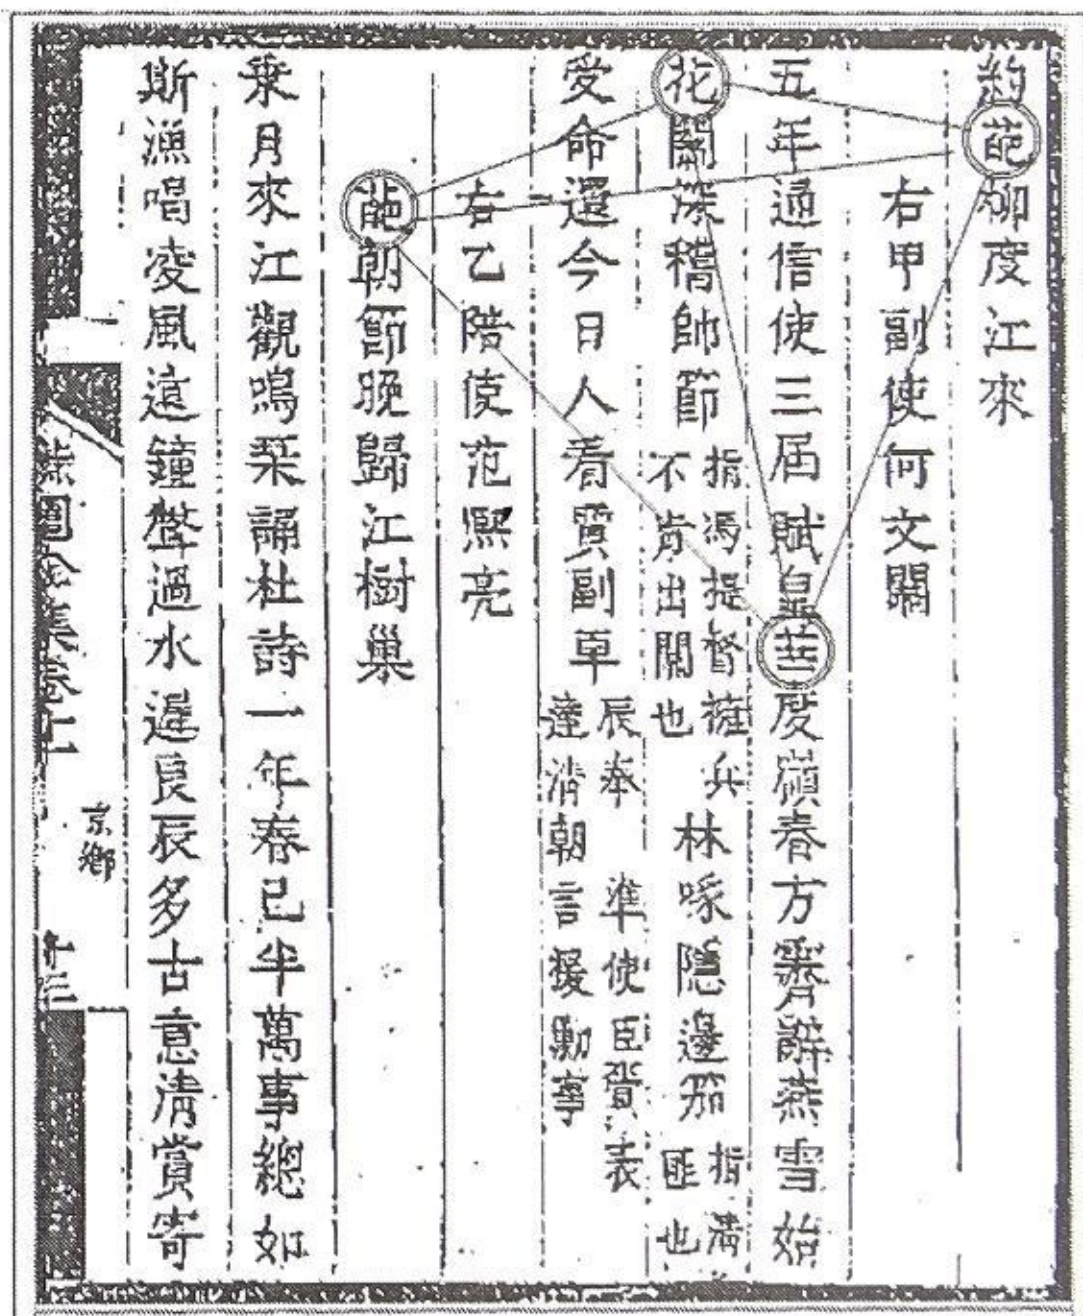 約葩柳度江來
右甲副使何文關
五年通信使三届賦皇華度嶺春方霽辭燕雪始
花關深稽帥節
指馮提督擁兵
不肯出關也
林啄隱邊笳
指清
匪也
受命還今日人看質副草
辰奉準使臣賫表
達清朝言援勦事
右乙陪使范熙亮
葩朝節晚歸江樹巢
乗月來江觀鳴琹誦杜詩一年春已半萬事總如
斯漁唱凌風遠鐘聲過水遲良辰多古意清賞寄
園全集卷十
京鄉
十三